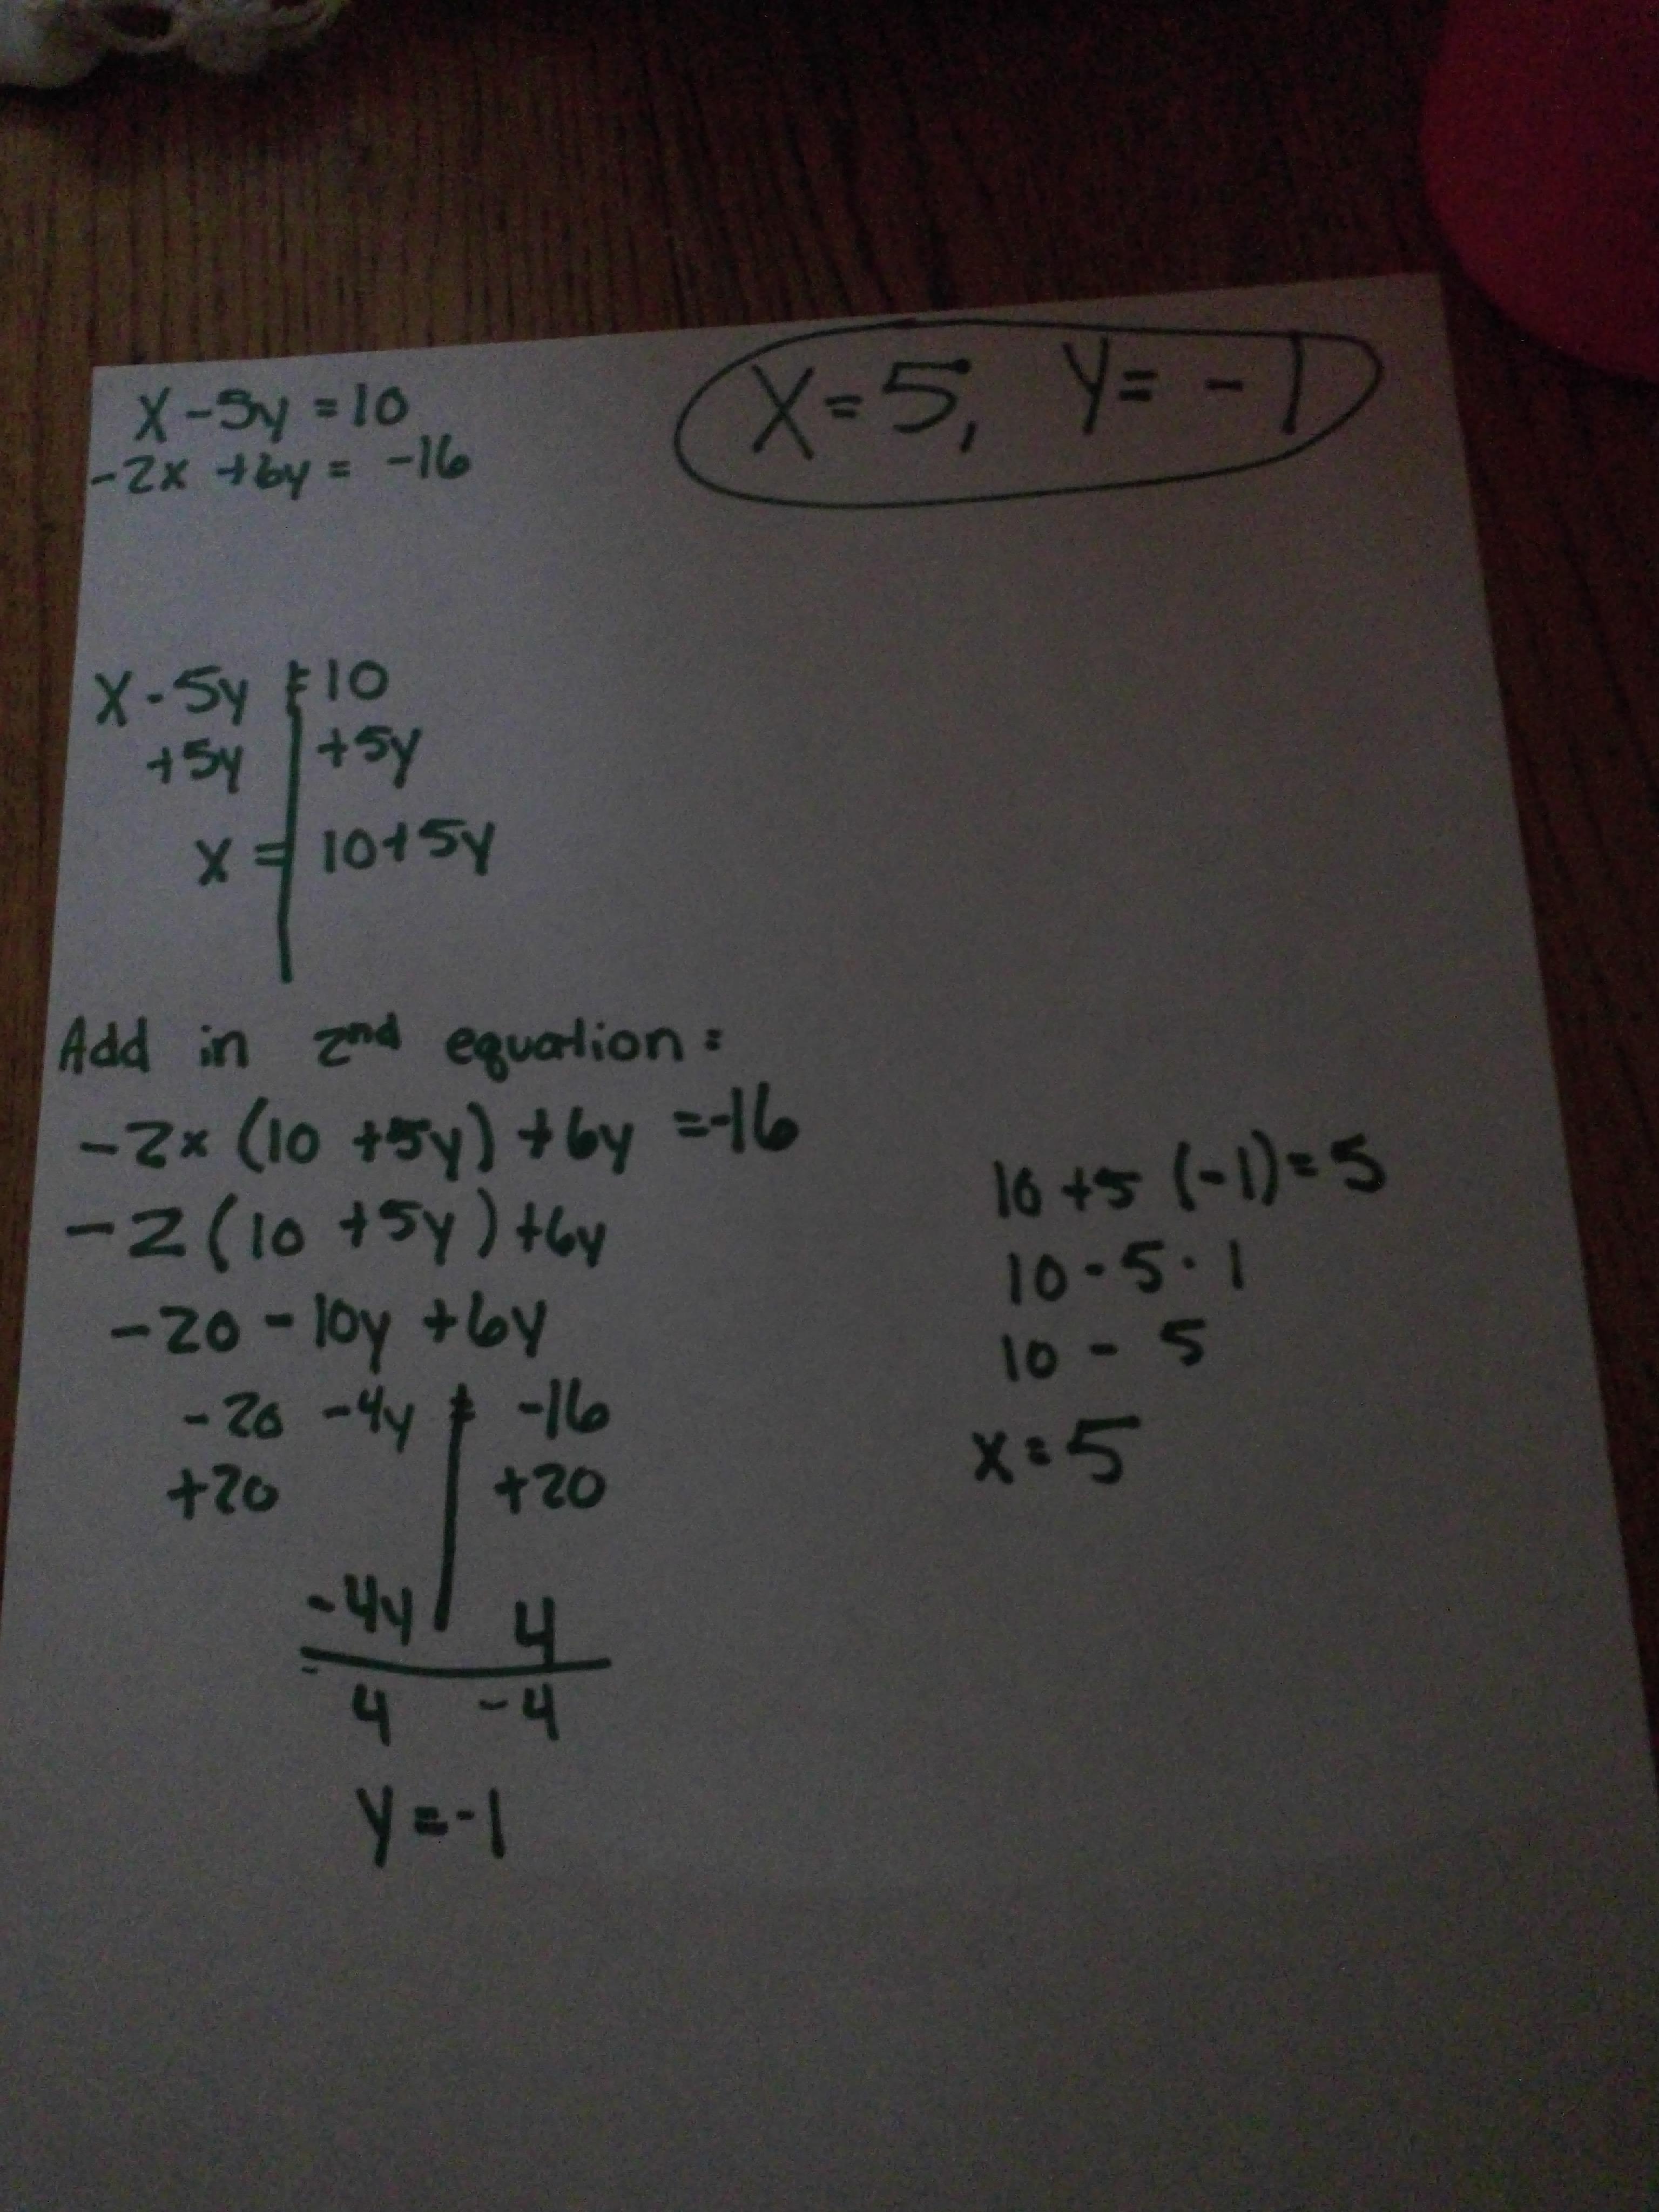 x-5y=10
-2x +6y = -16
X=5, Y= -1
X-5y = 10
+5y +5y
x = 10+5y
Add in 2nd equation:
-2x (10 +5y) +6y =-16
-2(10 +5y)+6y
-20 - 10y +6y
-20 -4y = -16
+20 +20
-4y 4
-4 -4
y=-1
10 +5 (-1)=5
10-5·1
10 - 5
x=5